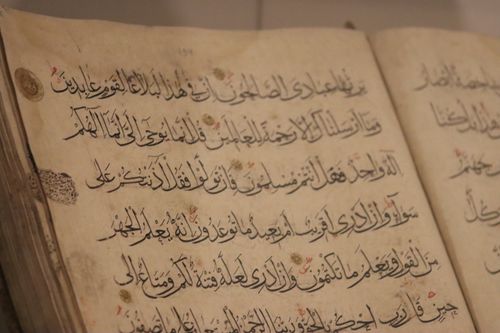 يرثها عبادي الصالحون إن في هذا لبلاغا لقوم عابدين
وما أرسلناك إلا رحمة للعالمين قل إنما يوحى إلي أنما إلهكم
إله واحد فهل أنتم مسلمون فإن تولوا فقل آذنتكم على
سواء وإن أدري أقريب أم بعيد ما توعدون إنه يعلم الجهر
من القول ويعلم ما تكتمون وإن أدري لعله فتنة لكم ومتاع إلى
حين قال رب احكم بالحق وربنا الرحمن المستعان على ما تصفون